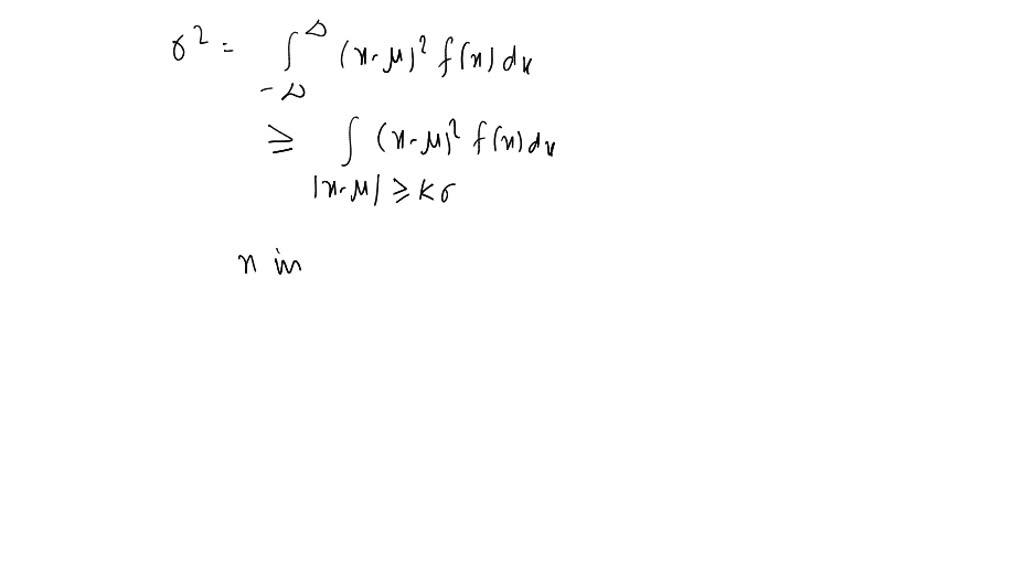 σ² = ∫_{-∞}^{∞} (x-μ)² f(x) dx
≥ ∫_{|x-μ| ≥ kσ} (x-μ)² f(x) dx
x in